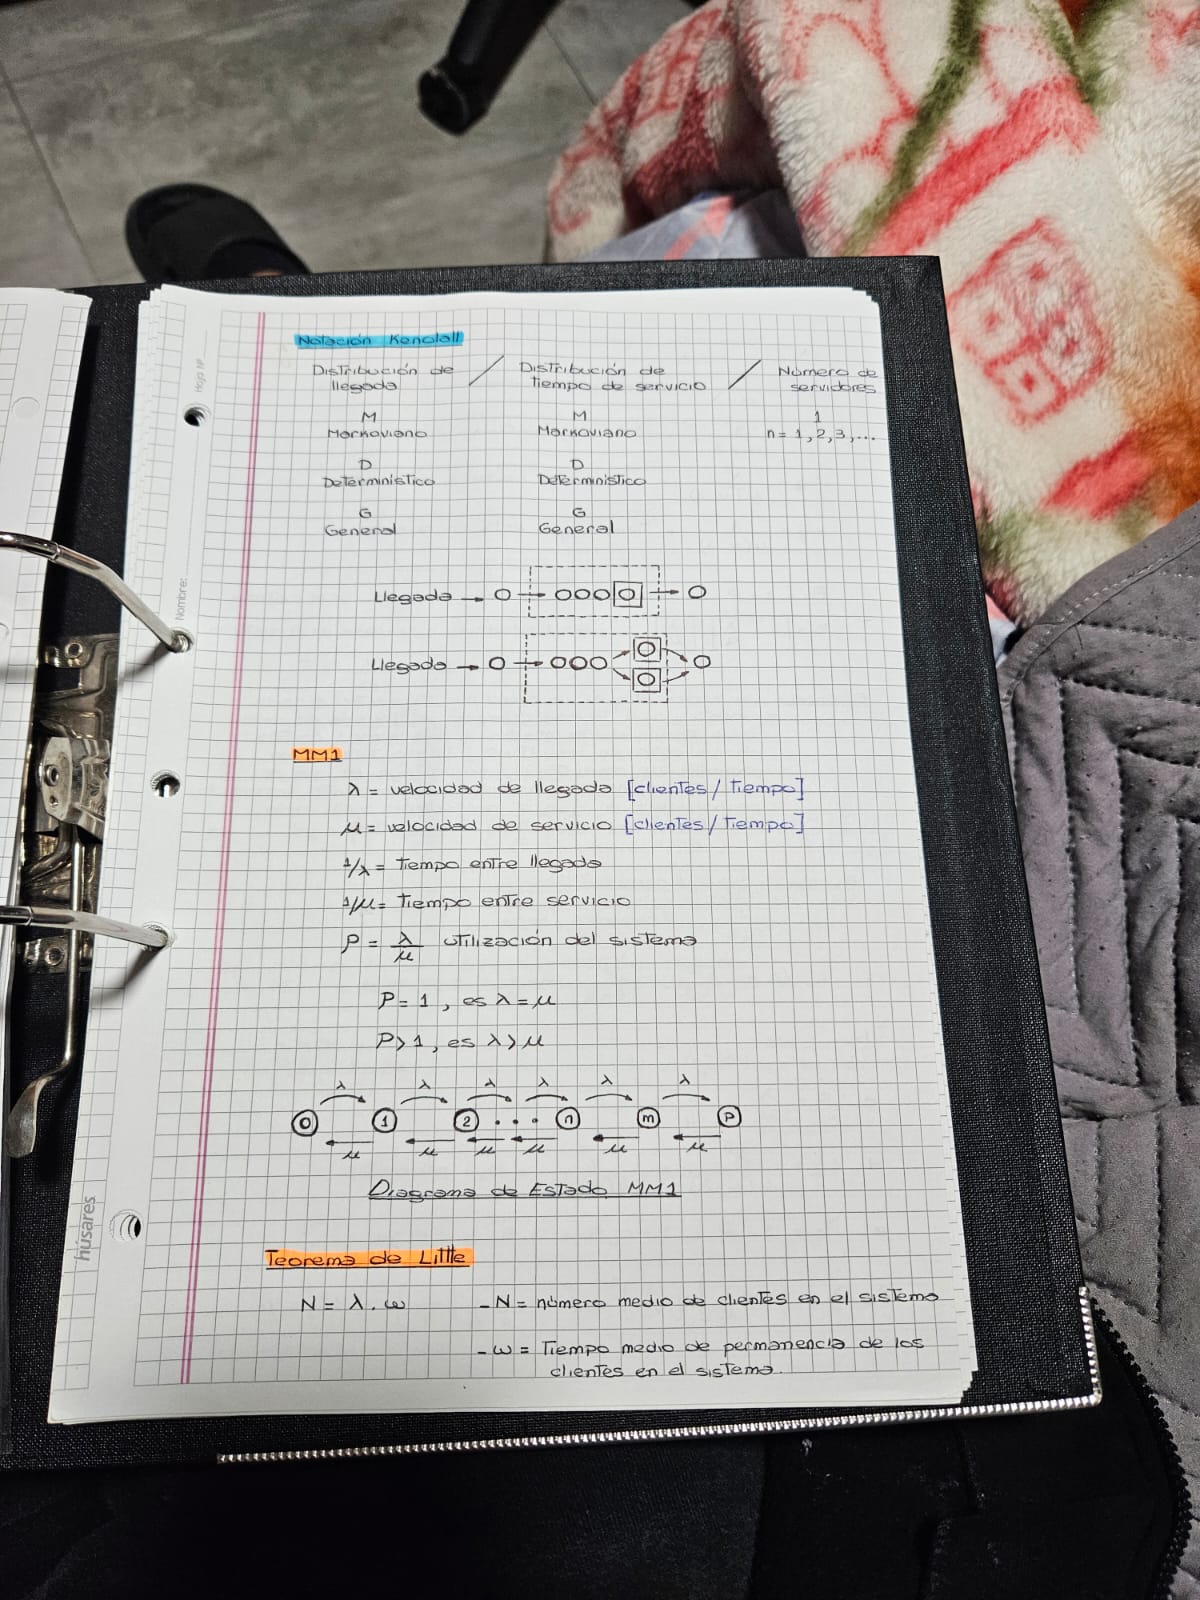 Notación Kendall
Distribución de llegada / Distribución de tiempo de servicio / Número de servidores
M M 1
Markoviano Markoviano n = 1, 2, 3, ...
D D
Deterministico Deterministico
G G
General General
Llegada → O → OOO O → O
Llegada → O → OOO O O O
MM1
λ = velocidad de llegada [clientes / Tiempo]
μ = velocidad de servicio [clientes / Tiempo]
1/λ = Tiempo entre llegada
1/μ = Tiempo entre servicio
ρ = λ/μ utilización del sistema
P = 1, es λ = μ
P > 1, es λ > μ
λ λ λ λ λ λ
0 1 2 ... n m P
μ μ μ μ μ μ
Diagrama de Estado MM1
Teorema de Little
N = λ . ω - N = número medio de clientes en el sistema
- ω = Tiempo medio de permanencia de los
clientes en el sistema.
Hoja Nº
Nombre:
húsares